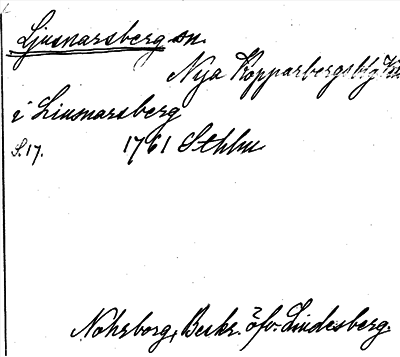 Ljusnarsberg sn.
Nya Kopparbergsbg
i Liusnarsberg
S.17. 1761 Sthbu
Nohrborg, Beskr. öfv. Lindesberg.